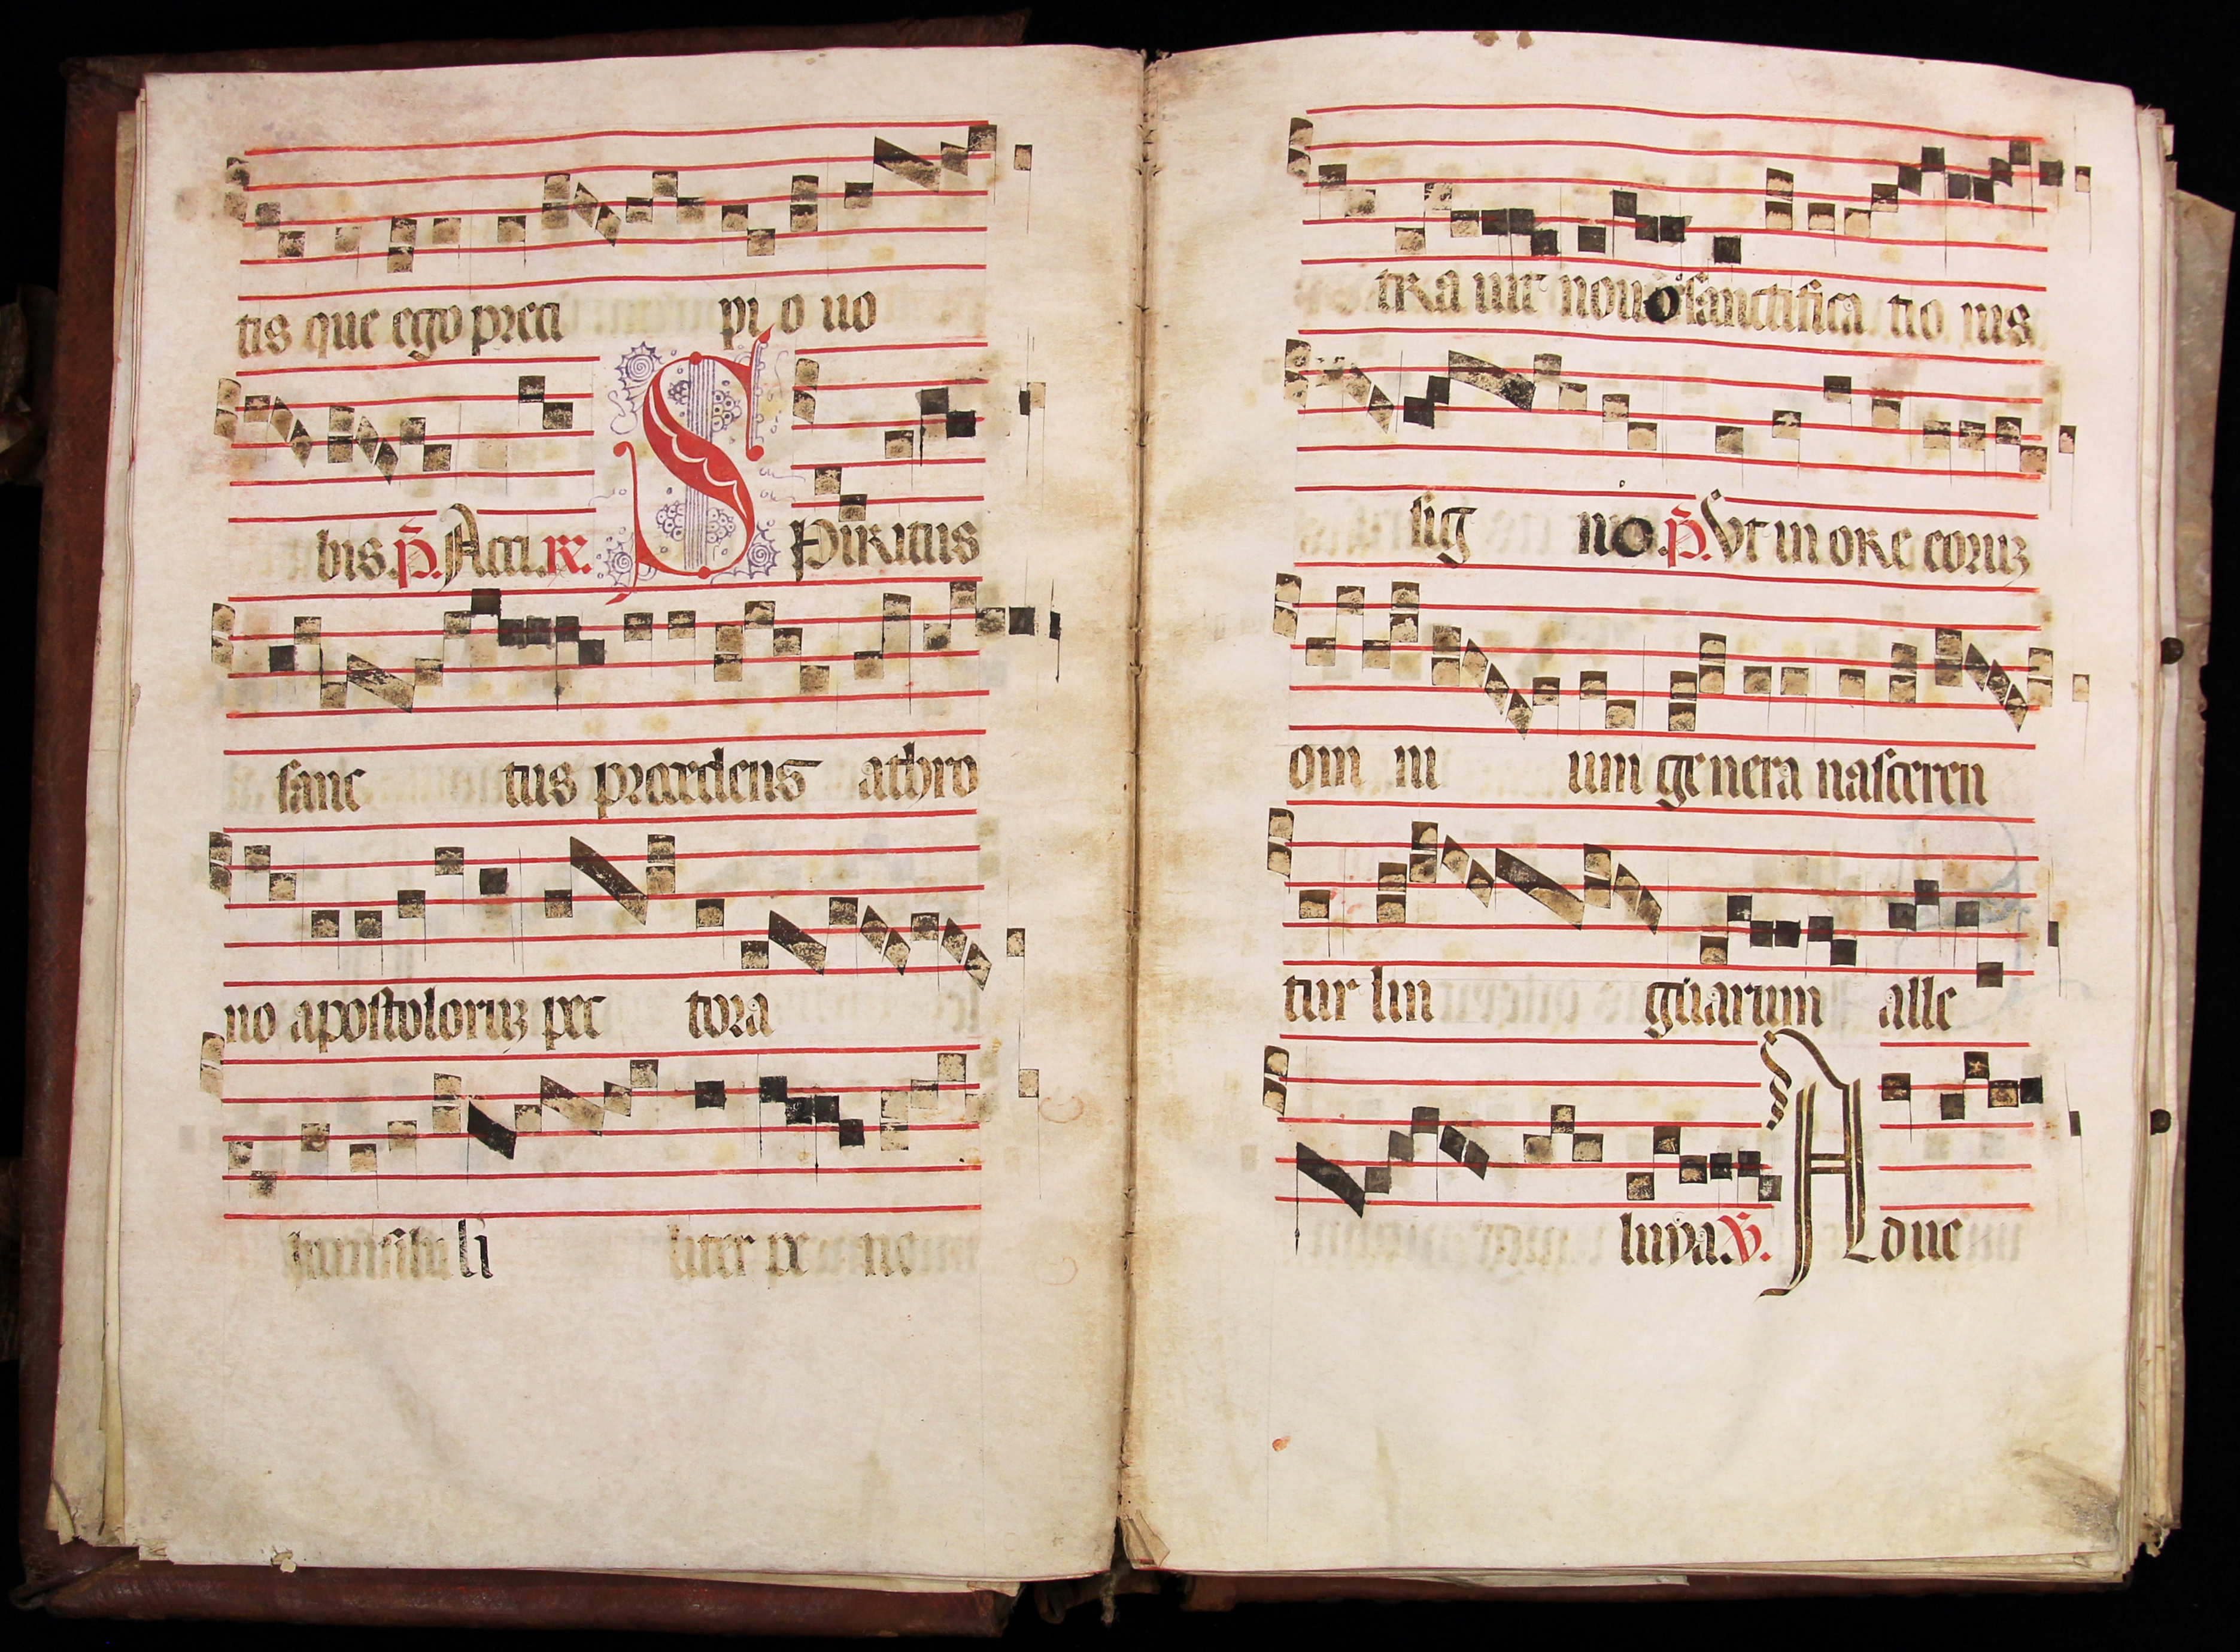 tis que ego preci pi o uo
bis. P̄. Acci. R. S Piritus
sanc tus procedens a thro
no apostoloruꝫ pec tora
li liter pe ne
tra uit nouo sanctifica tio nis
sig no. P̄. Vt in ore eoruꝫ
om ni um genera nasceren
tur lin guarum alle
luya. V. A Duc